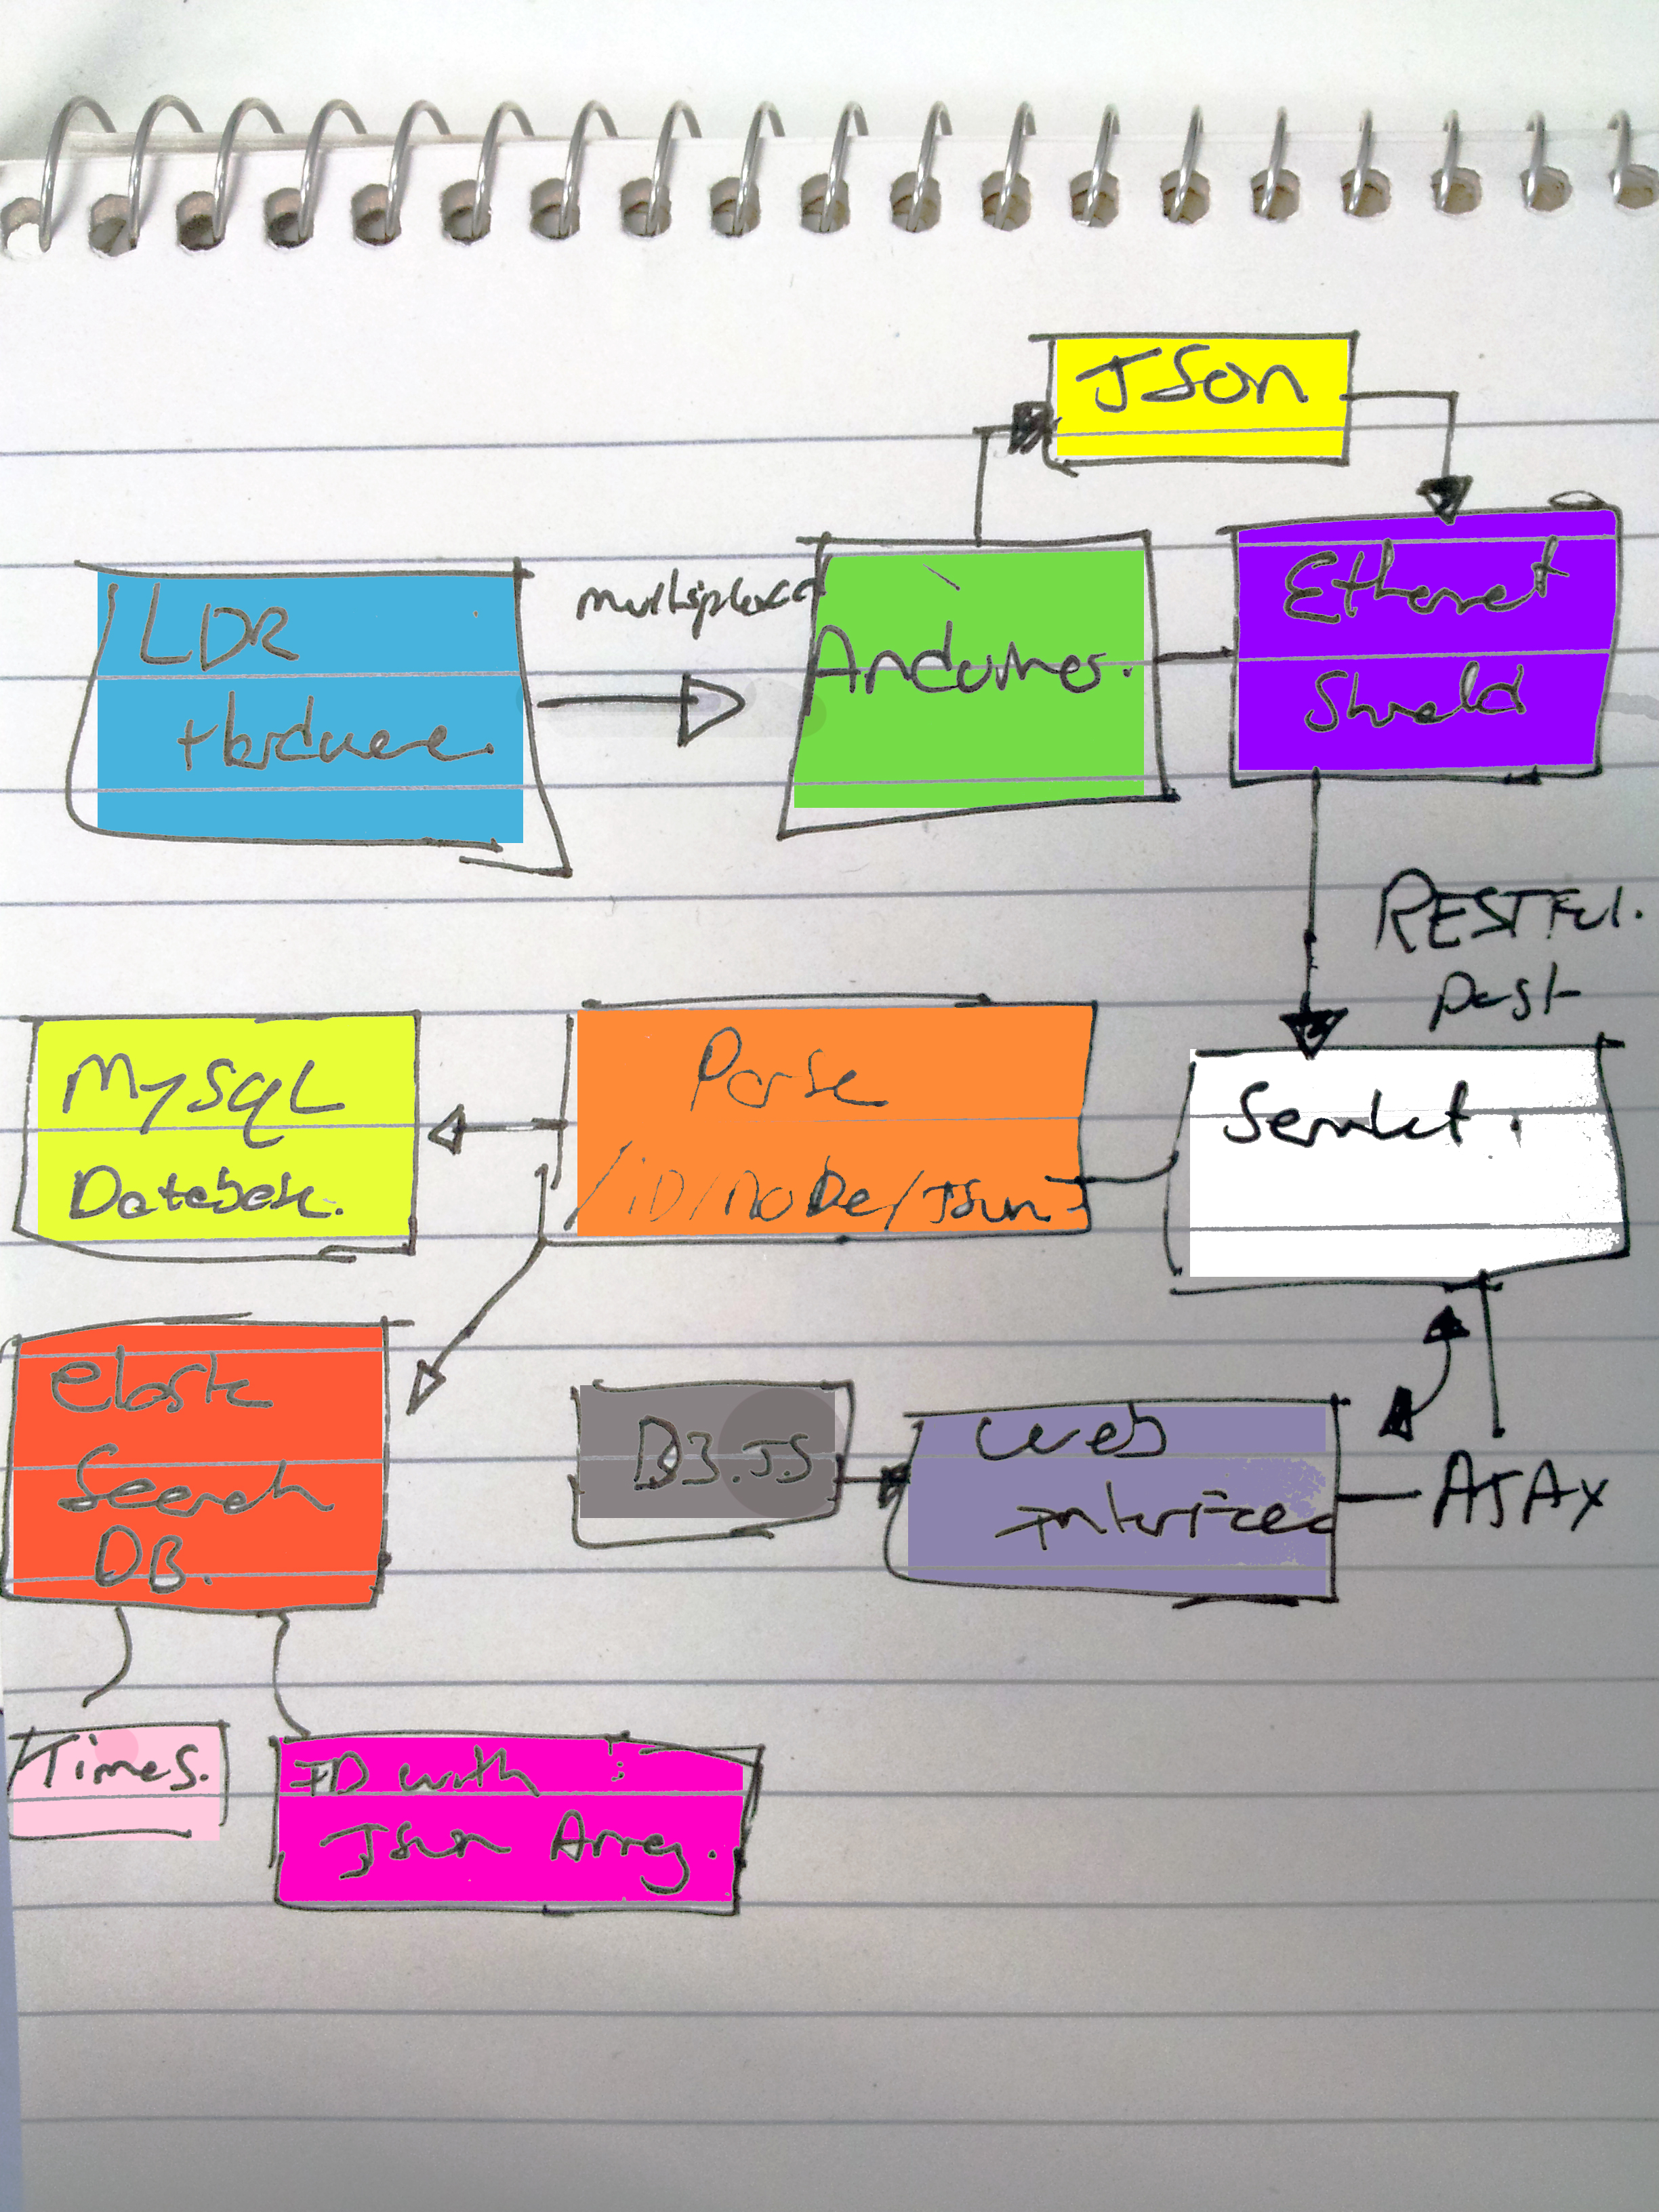 JSon
LDR
Hardware.
multiplexed
Arduinos.
Ethernet
Shield
RESTFul.
post
MySQL
Database.
Parse
/iD/NoDe/JSon
Servlet.
Elastic
Search
DB.
D3.JS
Web
Interface
AJAX
Times.
ID with :
JSon Array.